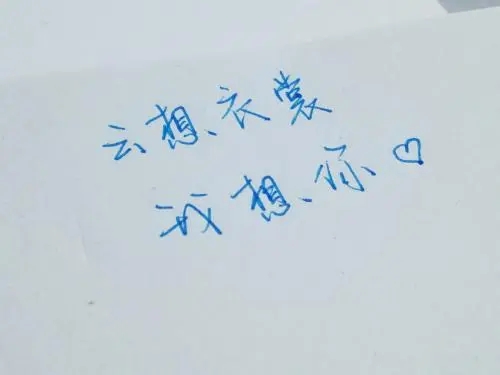 云想衣裳
我想你♡